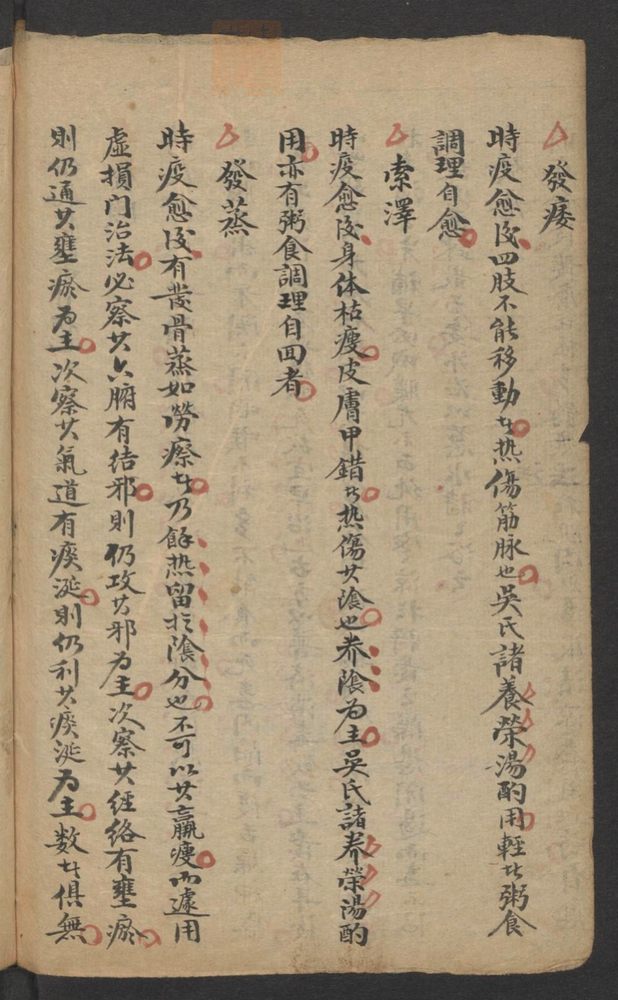 發痿
時疫愈後四肢不能移動者热傷筋脉也吳氏諸養荣湯酌用輕者粥食
調理自愈
索澤
時疫愈後身体枯瘦皮膚甲錯者热傷其陰也养陰为主吳氏諸养荣湯酌
用亦有粥食調理自回者
發蒸
時疫愈後有發骨蒸如勞瘵者乃餘热留於陰分也不可以其羸瘦而遽用
虛損门治法必察其六腑有结邪則仍攻其邪为主次察其经络有壅瘀
則仍通其壅瘀为主次察其氣道有痰涎則仍利其痰涎为主数者俱無